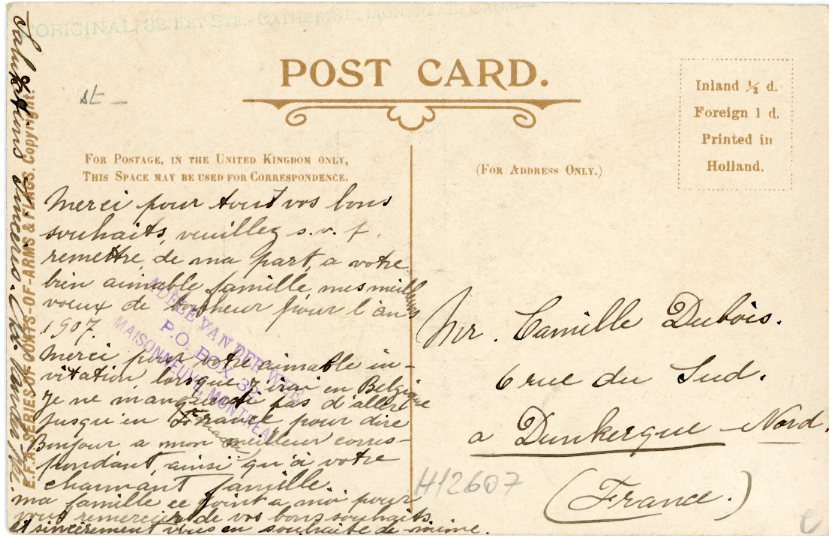 ORIGINAL, 32 EST STE.-CATHERINE, MONTREAL,
POST CARD.
st -
Inland ½ d.
Foreign 1 d.
Printed in
Holland.
FOR POSTAGE, IN THE UNITED KINGDOM ONLY,
THIS SPACE MAY BE USED FOR CORRESPONDENCE.
(FOR ADDRESS ONLY.)
Merci pour tout vos bons
souhaits, veuillez s. v. p.
remettre, de ma part, a votre
bien aimable famille, mes meilleurs
voeux de bonheur pour l'an
1907.
Merci pour votre aimable in-
vitation lorsque j'irai en Belgique
je ne manquerai pas d'aller
jusqu'en France, pour dire
Bonjour a mon meilleur corres-
pondant, ainsi qu'à votre
charmant famille.
ma famille ce joint a moi pour
vous remercier de vos bons souhaits
et sincèrement vous en souhaite de même.
VAN DER
P.O. BOX
MAISONNEUVE, MONTREAL
Mr. Camille Dubois.
6 rue du Sud.
a Dunkerque - Nord.
(France.)
H12607
SERIES OF COATS-OF-ARMS & FLAGS. Copyright